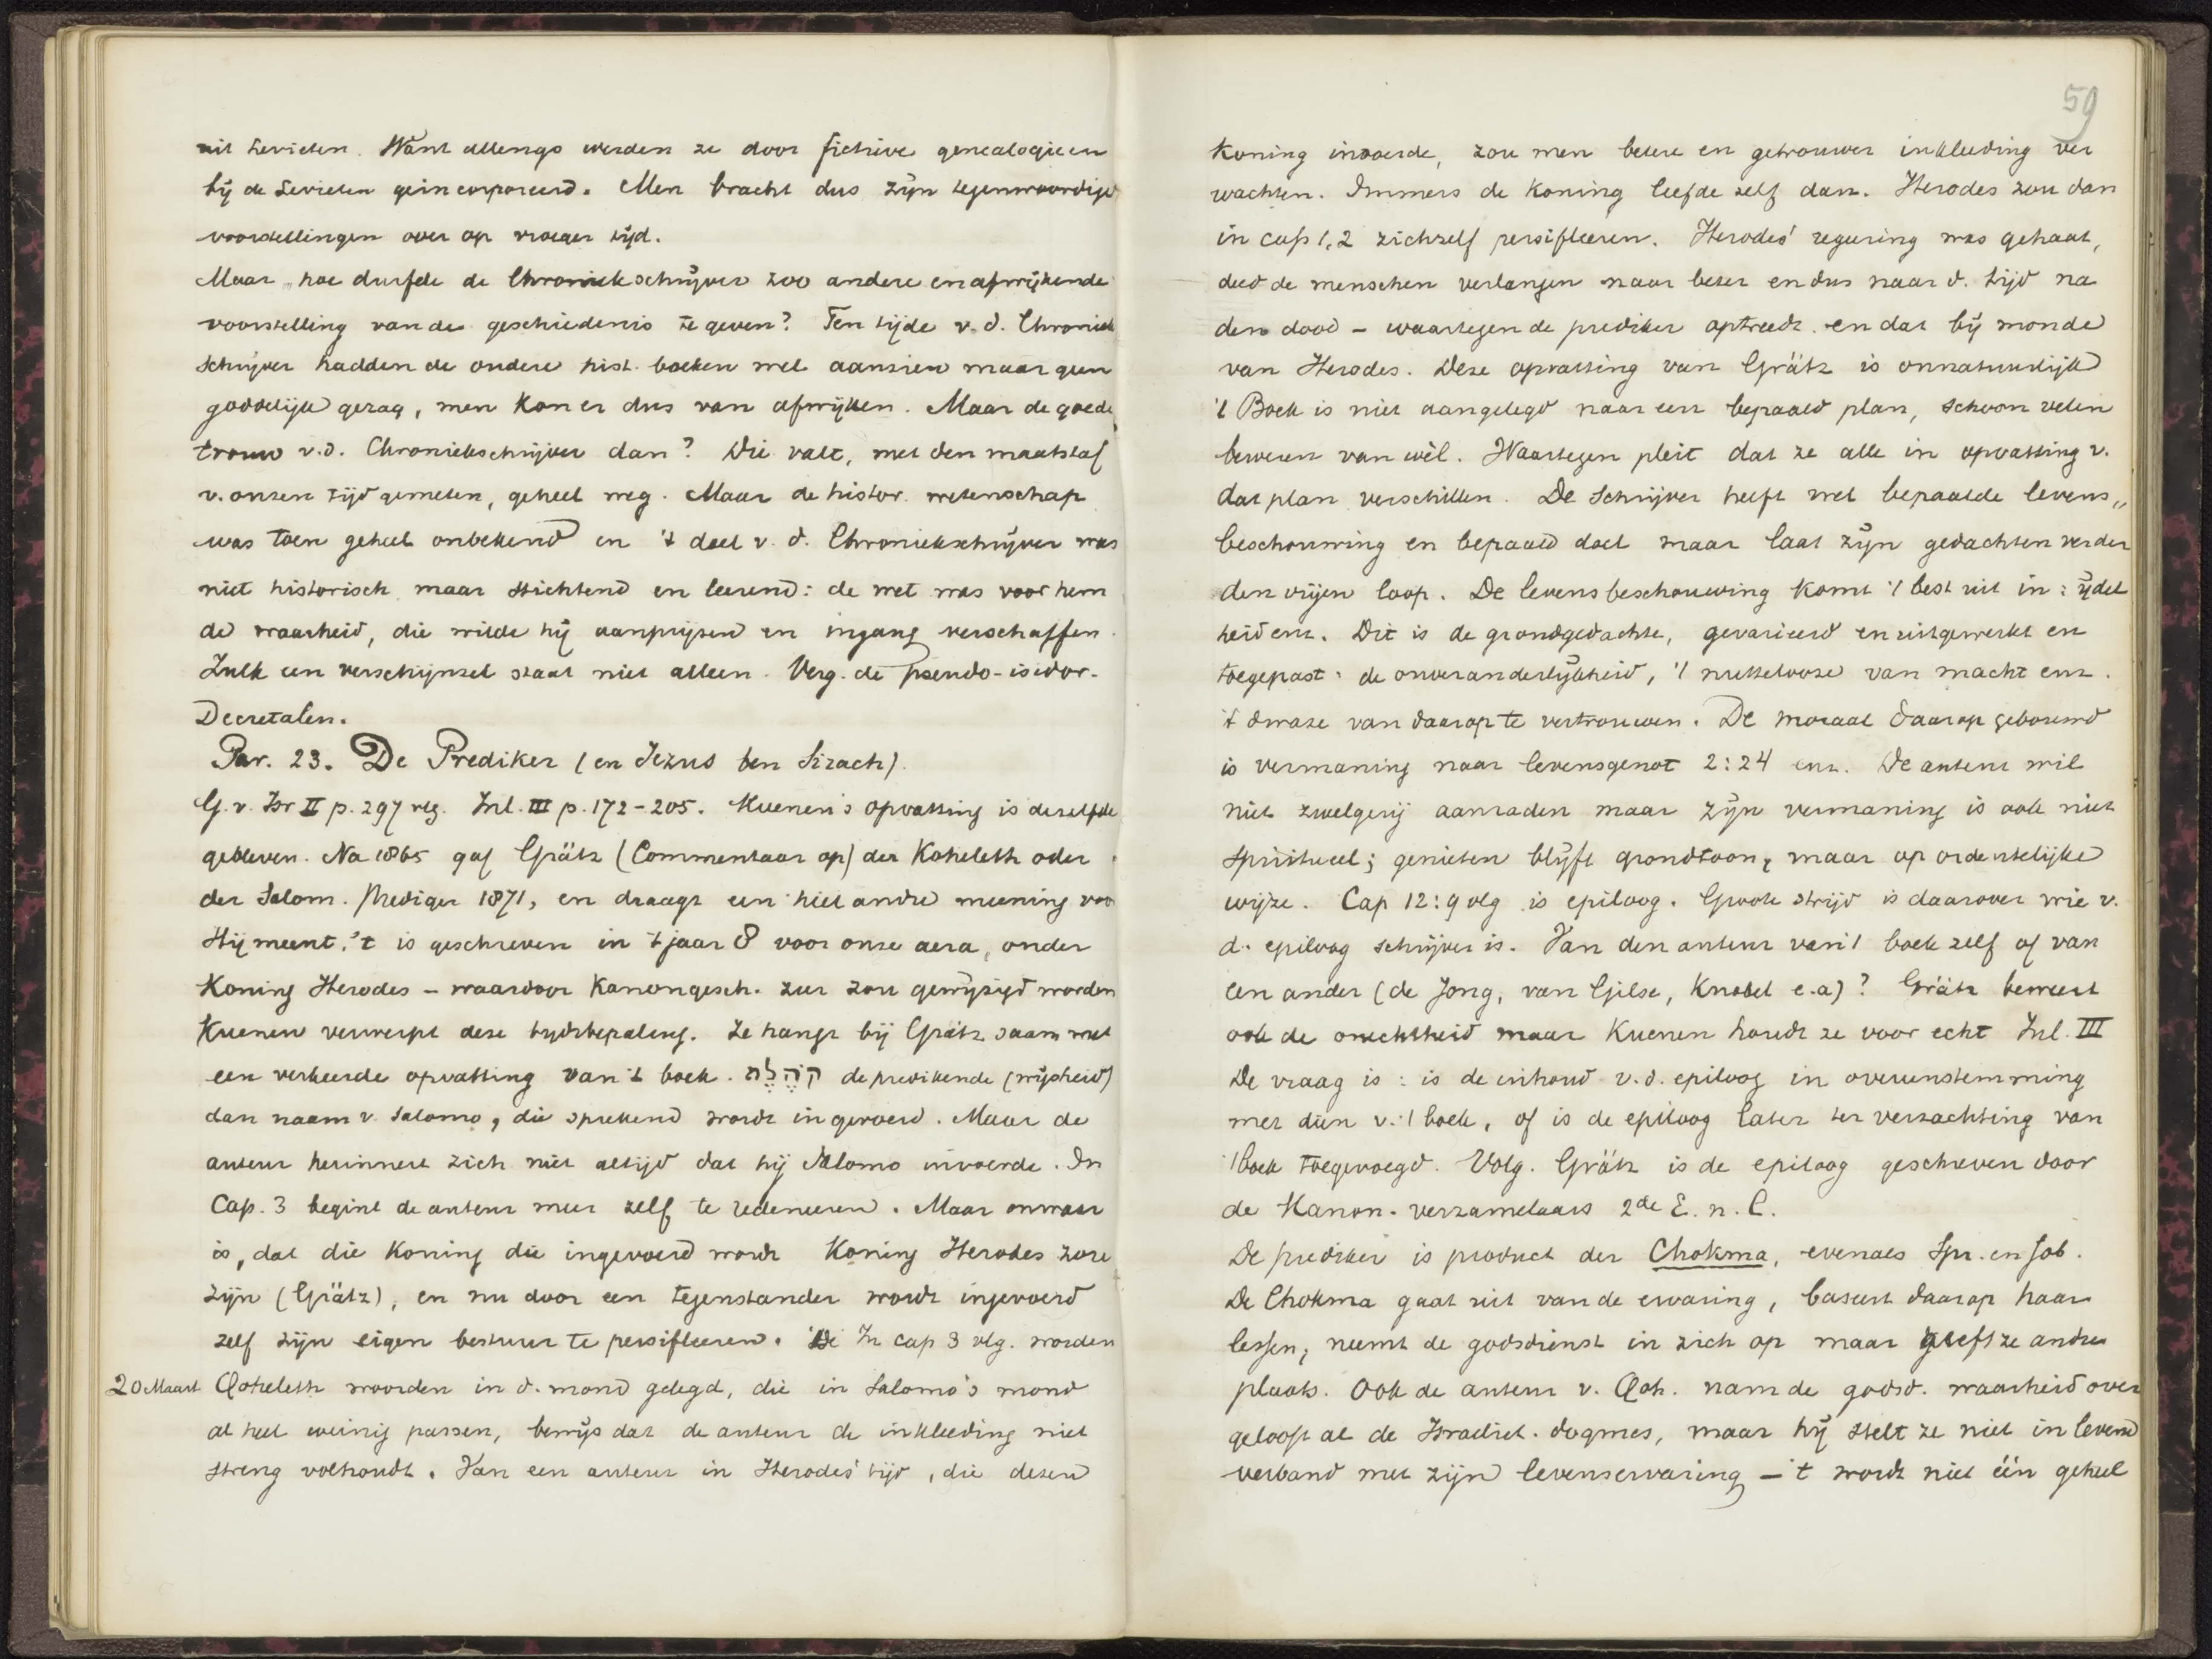 uit Levieten. Want allengs werden ze door fictieve genealogieen
bij de Levieten geincorporeerd. Men bracht dus zijn tegenwoordige
voorstellingen over op vroeger tijd.
Maar hoe durfde de Chroniekschrijver zoo andere en afwijkende
voorstelling van de geschiedenis te geven? Ten tijde v. d. Chroniek
schrijver hadden de andere hist. boeken wel aanzien maar geen
goddelijk gezag, men kon er dus van afwijken. Maar de goede
trouw v.d. Chroniekschrijver dan? Die valt, met den maatstaf
v. onzen tijd gemeten, geheel weg. Maar de histor. wetenschap
was toen geheel onbekend en 't doel v. d. Chroniekschrijver was
niet historisch maar stichtend en leerend: de wet was voor hem
de waarheid, die wilde hij aanprijzen en ingang verschaffen.
Zulk een verschijnsel staat niet alleen. Verg. de pseudo-isidor.
Decretalen.
Par. 23. De Prediker (en Jezus ben Sirach).
G. v. Isr II p. 297 vlg. Inl. III p. 172-205. Kuenen's opvatting is dezelfde
gebleven. Na 1865 gaf Grätz (Commentaar op) der Koheleth oder
der Salom. Prediger 1871, en draagt een heel andre meening voor
Hij meent, 't is geschreven in 't jaar 8 voor onze aera, onder
Koning Herodes – waardoor Kanongesch. zeer zou gewijzigd worden
Kuenen verwerpt deze tijdsbepaling. Ze hangt bij Grätz saam met
een verkeerde opvatting van 't boek. קֹהֶלֶת de predikende (wijsheid)
dan naam v. Salomo, die sprekend wordt ingevoerd. Maar de
auteur herinnert zich niet altijd dat hij Salomo invoerde. In
Cap. 3 begint de auteur meer zelf te redeneeren. Maar onwaar
is, dat die Koning die ingevoerd wordt Koning Herodes zou
zijn (Grätz), en nu door een tegenstander wordt ingevoerd
zelf zijn eigen bestuur te persifleeren. In cap 3 vlg. worden
20 Maart Qoheleth woorden in d. mond gelegd, die in Salomo's mond
al heel weinig passen, bewijs dat de auteur de inkleeding niet
streng volhoudt. Van een auteur in Herodes' tijd, die dezen
59
Koning invoerde, zou men betere en getrouwer inkleeding ver
wachten. Immers de Koning leefde zelf dan. Herodes zou dan
in cap 1,2 zichzelf persifleeren. Herodes' regeering was gehaat,
deed de menschen verlangen naar beter en dus naar d. tijd na
den dood – waartegen de prediker optreedt en dat bij monde
van Herodes. Deze opvatting van Grätz is onnatuurlijk
't Boek is niet aangelegd naar een bepaald plan, schoon velen
beweren van wèl. Waartegen pleit dat ze alle in opvatting v.
dat plan verschillen. De Schrijver heeft wel bepaalde levens„
beschouwing en bepaald doel maar laat zijn gedachten verder
den vrijen loop. De levensbeschouwing komt 't best uit in: ijdel
heid enz. Dit is de grondgedachte, gevarieerd en uitgewerkt en
toegepast: de onveranderlijkheid, 't nuttelooze van macht enz.
't dwaze van daarop te vertrouwen. De moraal daarop gebouwd
is vermaning naar levensgenot 2:24 enz. De auteur wil
niet zwelgerij aanraden maar zijn vermaning is ook niet
spiritueel; genieten blijft grondtoon, maar op ordentelijke
wijze. Cap 12:9 vlg is epiloog. Groote strijd is daarover wie v.
d. epiloog schrijver is. Van den auteur van 't boek zelf of van
een ander (de Jong, van Gilse, Knobel e.a)? Grätz beweert
ook de onechtheid maar Kuenen houdt ze voor echt Inl. III
De vraag is: is de inhoud v. d. epiloog in overeenstemming
met dien v. 't boek, of is de epiloog later ter verzachting van
't boek toegevoegd. Volg. Grätz is de epiloog geschreven door
de Kanon. verzamelaars 2de E. n. C.
De prediker is product der Chokma, evenals Spr. en Job.
De Chokma gaat uit van de ervaring, baseert daarop haar
lessen, neemt de godsdienst in zich op maar geeft ze andre
plaats. Ook de auteur v. Qoh. nam de godsd. waarheid over
gelooft al de Israelit. dogmes, maar hij stelt ze niet in levend
verband met zijn levenservaring – 't wordt niet één geheel